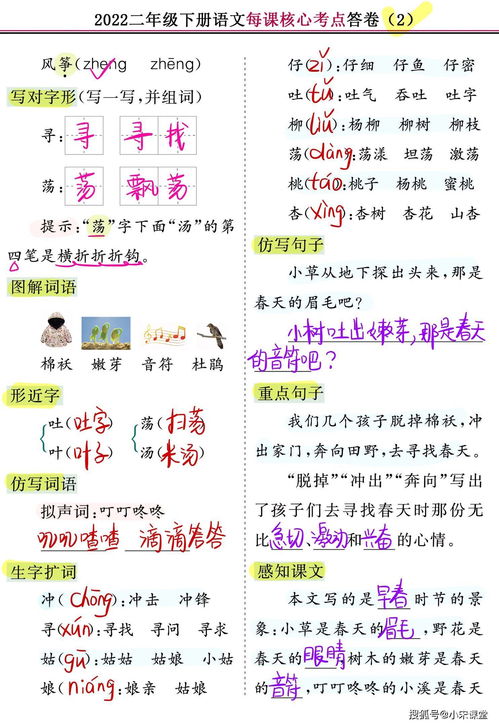 2022二年级下册语文每课核心考点答卷(2)
风筝(zheng zhēng)
写对字形(写一写,并组词)
寻:寻 寻找
荡:荡 飘荡
提示:“荡”字下面“汤”的第
四笔是横折折折钩。
图解词语
棉袄 嫩芽 音符 杜鹃
形近字
吐(吐字) 荡(扫荡)
叶(叶子) 汤(米汤)
仿写词语
拟声词:叮叮咚咚
叽叽喳喳 滴滴答答
生字扩词
冲(chōng):冲击 冲锋
寻(xún):寻找 寻问 寻求
姑(gū):姑姑 姑娘 小姑
娘(niáng):娘亲 姑娘
仔(zǐ):仔细 仔鱼 仔密
吐(tǔ):吐气 吞吐 吐字
柳(liǔ):杨柳 柳树 柳枝
荡(dàng):荡漾 坦荡 激荡
桃(táo):桃子 杨桃 蜜桃
杏(xìng):杏树 杏花 山杏
仿写句子
小草从地下探出头来,那是
春天的眉毛吧?
小树吐出嫩芽,那是春天
的音符吧?
重点句子
我们几个孩子脱掉棉袄,冲
出家门,奔向田野,去寻找春天。
“脱掉”“冲出”“奔向”写出
了孩子们去寻找春天时那份无
比急切、激动和兴奋的心情。
感知课文
本文写的是早春时节的景
象:小草是春天的眉毛,野花是
春天的眼睛树木的嫩芽是春天
的音符,叮叮咚咚的小溪是春天
搜狐号@小宋课堂